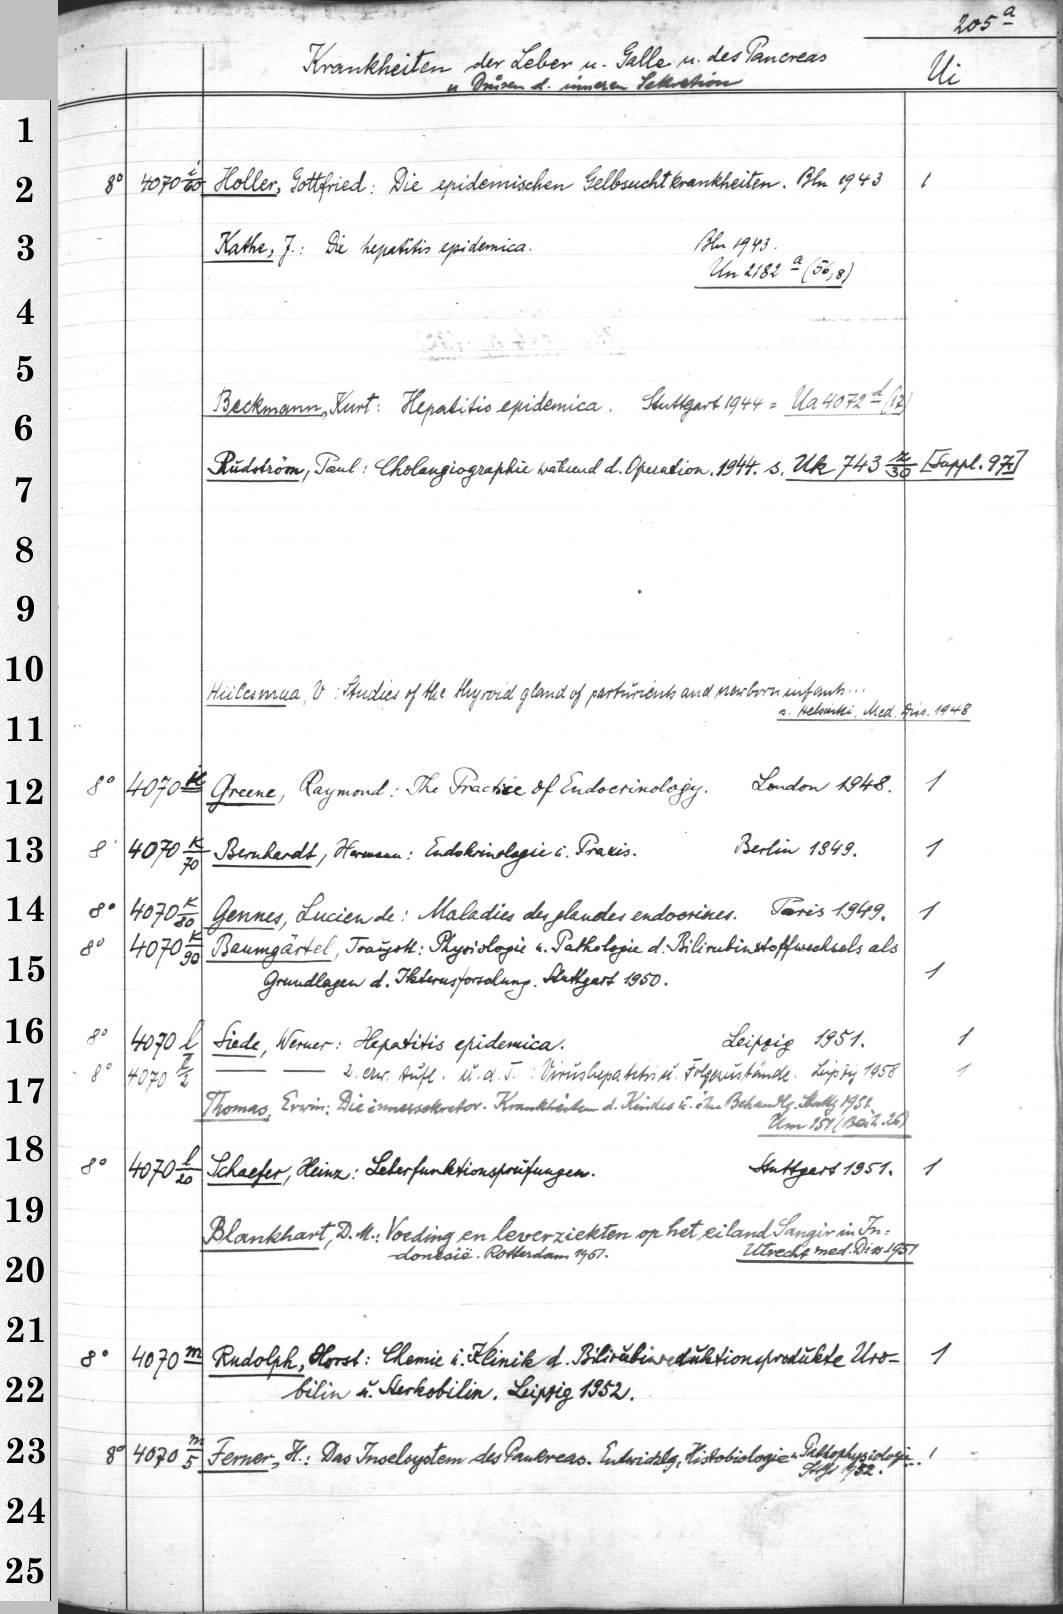 205 a
Krankheiten der Leber u. Galle u. des Pancreas
u Drüsen d. inneren Sekretion
Ui
1
2 8° 4070 i/60 Holler, Gottfried: Die epidemischen Gelbsuchtkrankheiten. Bln 1943 1
3 Kathe, J.: Die hepatitis epidemica. Bln 1943.
Un 2182 a (56,8)
4
5
6 Beckmann, Kurt: Hepatitis epidemica. Stuttgart 1944 = Ua 4072 d (12)
7 Rudström, Paul: Cholangiographie während d. Operation. 1944. s. Uk 743 z/30 [Suppl. 97]
8
9
10
Hiilesmaa, V: Studies of the thyroid gland of parturients and newborn infants...
11 s. Helsinki, Med. Diss. 1948
12 8° 4070 k Greene, Raymond: The Practice of Endocrinology. London 1948. 1
13 8° 4070 k/70 Bernhardt, Hermann: Endokrinologie i. Praxis. Berlin 1949. 1
14 8° 4070 k/80 Gennes, Lucien de: Maladies des glandes endocrines. Paris 1949. 1
8° 4070 k/90 Baumgärtel, Traugott: Physiologie u. Pathologie d. Bilirubinstoffwechsels als
15 Grundlagen d. Ikterusforschung. Stuttgart 1950. 1
16 8° 4070 l Siede, Werner: Hepatitis epidemica. Leipzig 1951. 1
8° 4070 l/2 — — 2. erw. Aufl. u. d. T.: Virushepatitis u. Folgezustände. Leipzig 1958 1
17 Thomas, Erwin: Die innersekretor. Krankheiten d. Kindes u. ihre Behandlg. Stuttg 1951
Um 151 (Beih. 26)
18 8° 4070 l/20 Schaefer, Heinz: Leberfunktionsprüfungen. Stuttgart 1951. 1
19 Blankhart, D. M.: Voeding en leverziekten op het eiland Sangir in In-
20 donesië. Rotterdam 1951. Utrecht med. Diss 1951
21
8° 4070 m Rudolph, Horst: Chemie u. Klinik d. Bilirubinreduktionsprodukte Uro- 1
22 bilin u. Sterkobilin. Leipzig 1952.
23 8° 4070 m/5 Ferner, H.: Das Inselsystem des Pankreas. Entwicklg, Histobiologie u. Pathophysiologie. 1
Sttgt 1952.
24
25